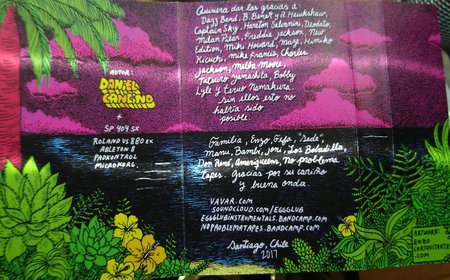 AUTOR:
DANIEL
CANCINO
+
SP 404 SX
ROLAND VS 880 EX
ABLETON 8
PADKONTROL
MICROKORG
Quisiera dar las gracias a:
Dazz Band, B. Bennet y A. Hawkshaw,
Captain Sky, Hareton Salvanini, Deodato,
Milan Pilar, Freddie Jackson, New
Edition, Miki Howard, Maze, Himiko
Kikuchi, Mike Francis, Charles
Jackson, Melba Moore,
Tatsuro Yamashita, Bobby
Lyle y Teruo Nakamura.
sin ellos esto no
habría sido
posible.
Familia, Enzo, Gefe, "Sede",
Manu, Bambi, Joni, Los Bobadilla,
Don René, Ameriqueens, No problema
Tapes. Gracias por su cariño
y buena onda.
VAVAR.COM
SOUNDCLOUD.COM/EGGGLUB
EGGGLUBINSTRUMENTALS.BANDCAMP.COM
NOPROBLEMATAPES.BANDCAMP.COM
Santiago, Chile
2017
ARTWORK:
ENZO